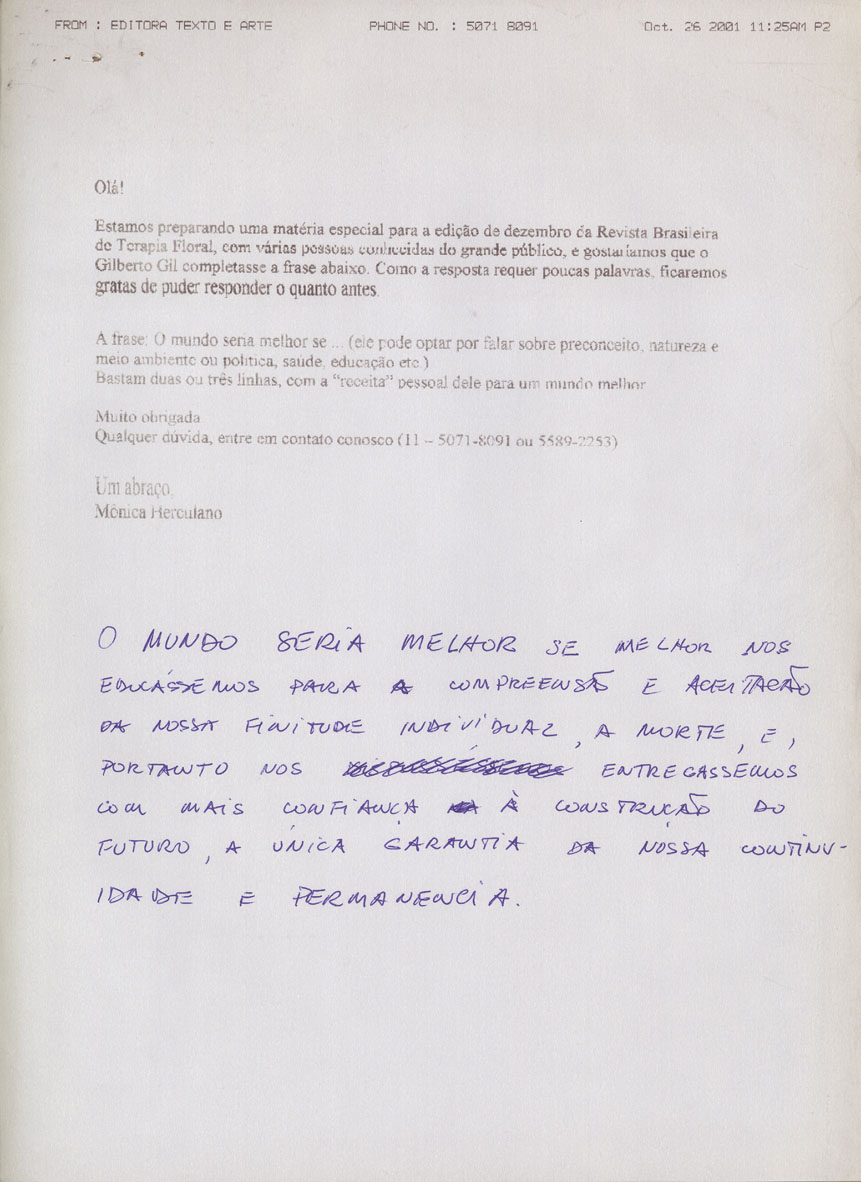 FROM : EDITORA TEXTO E ARTE PHONE NO. : 5071 8091 Oct. 26 2001 11:25AM P2
Olá!
Estamos preparando uma matéria especial para a edição de dezembro da Revista Brasileira
de Terapia Floral, com várias pessoas conhecidas do grande público, e gostaríamos que o
Gilberto Gil completasse a frase abaixo. Como a resposta requer poucas palavras, ficaremos
gratas de puder responder o quanto antes.
A frase: O mundo seria melhor se ... (ele pode optar por falar sobre preconceito, natureza e
meio ambiente ou política, saúde, educação etc.)
Bastam duas ou três linhas, com a "receita" pessoal dele para um mundo melhor
Muito obrigada
Qualquer dúvida, entre em contato conosco (11 – 5071-8091 ou 5589-2253)
Um abraço,
Mônica Herculano
O MUNDO SERIA MELHOR SE MELHOR NOS
EDUCÁSSEMOS PARA A COMPREENSÃO E ACEITAÇÃO
DA NOSSA FINITUDE INDIVIDUAL, A MORTE, E,
PORTANTO NOS ENTREGÁSSEMOS
COM MAIS CONFIANÇA À CONSTRUÇÃO DO
FUTURO, A ÚNICA GARANTIA DA NOSSA CONTINU-
IDADE E PERMANENCIA.